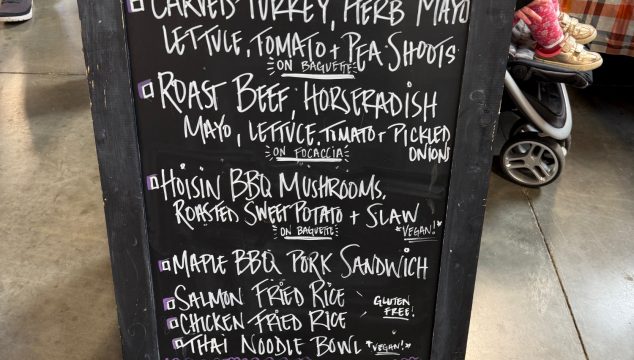 CARVED TURKEY, HERB MAYO
LETTUCE, TOMATO + PEA SHOOTS
ON BAGUETTE
ROAST BEEF, HORSERADISH
MAYO, LETTUCE, TOMATO + PICKLED
ONIONS
ON FOCACCIA
HOISIN BBQ MUSHROOMS,
ROASTED SWEET POTATO + SLAW
ON BAGUETTE *VEGAN!*
MAPLE BBQ PORK SANDWICH
SALMON FRIED RICE
GLUTEN
FREE!
CHICKEN FRIED RICE
THAI NOODLE BOWL *VEGAN!*